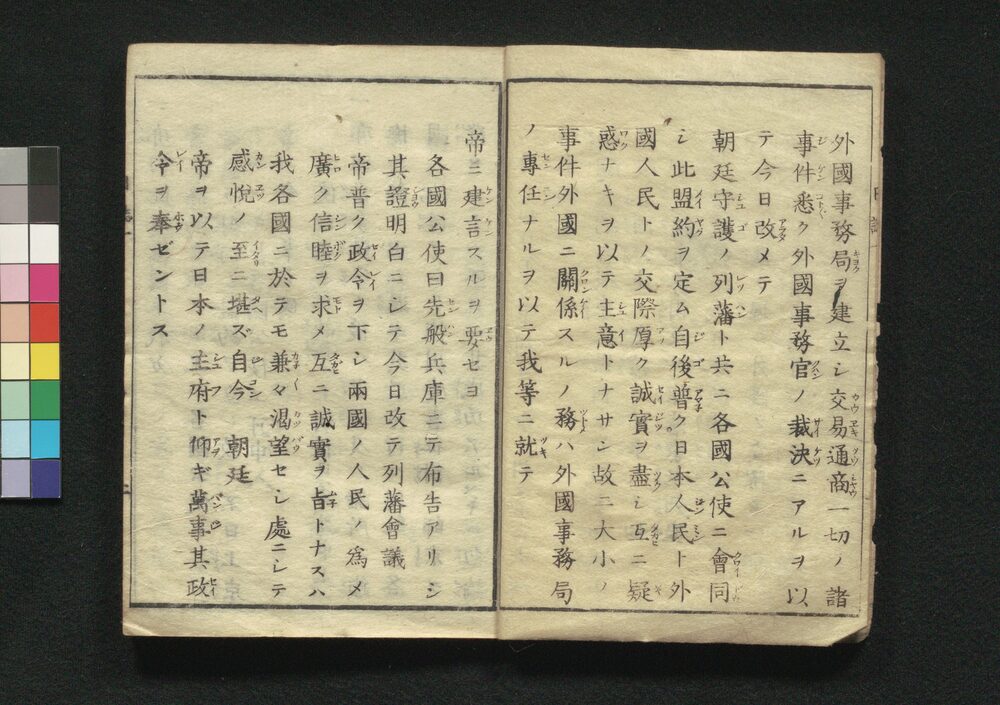 外國事務局ヲ建立シ交易通商一切ノ諸
事件悉ク外國事務官ノ裁決ニアルヲ以
テ今日改メテ
朝廷守護ノ列藩ト共ニ各國公使ニ會同
シ此盟約ヲ定ム自後普ク日本人民ト外
國人民トノ交際厚ク誠實ヲ盡シ互ニ疑
惑ナキヲ以テ主意トナサン故ニ大小ノ
事件外國ニ關係スルノ務ハ外國事務局
ノ專任ナルヲ以テ我等ニ就テ
帝ニ建言スルヲ要セヨ
各國公使曰先般兵庫ニテ布告アリシ
其證明白ニシテ今日改テ列藩會議
帝普ク政令ヲ下シ兩國ノ人民ノ爲メ
廣ク信睦ヲ求メ互ニ誠實ヲ旨トナスハ
我各國ニ於テモ兼々渴望セシ處ニシテ
感悅ノ至ニ堪ズ自今 朝廷
帝ヲ以テ日本ノ主府ト仰ギ萬事其政
令ヲ奉ゼントス